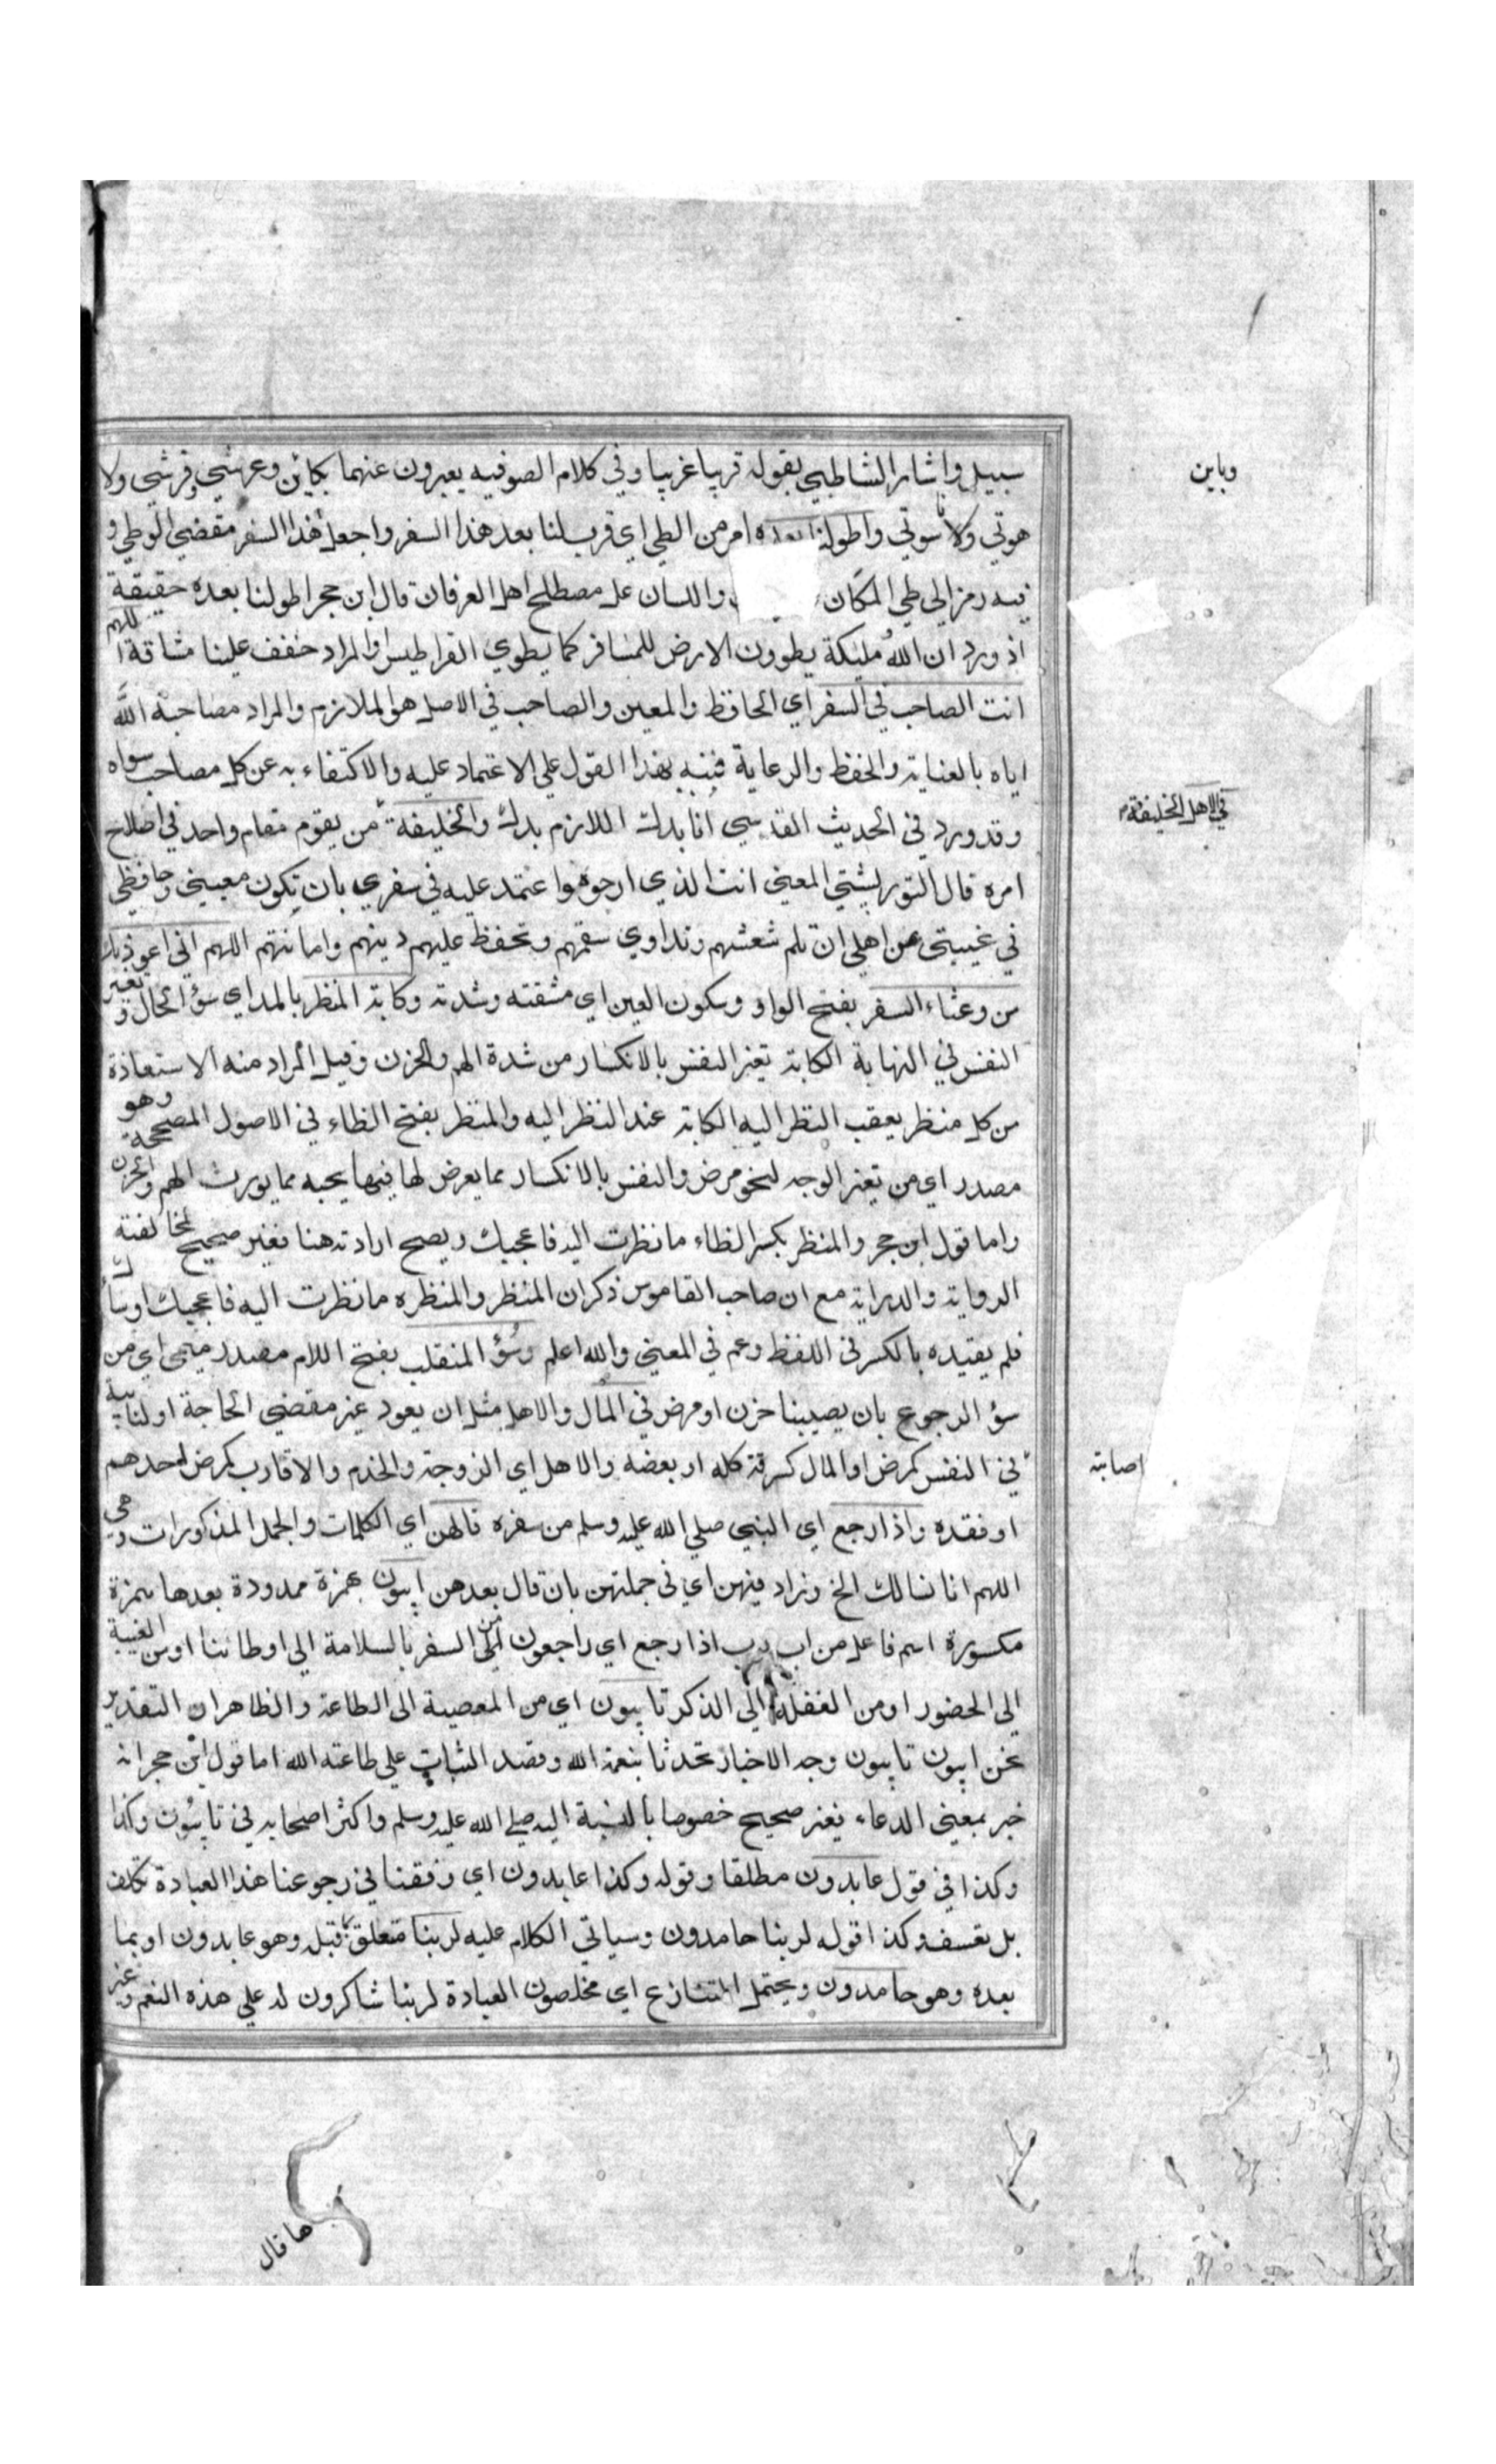 سبيل واشار الشاطبي بقوله قريبا غريبا وفي كلام الصوفيه يعبرون عنهما بكاين وعرشي وفرشي ولا
وباين
هوتي ولا سوتي واطولنا بعده امر من الطي اي قرب لنا بعد هذا السفر واجعل هذا السفر مقضي الوطر و
فيه رمز الى طي المكان واللسان على مصطلح اهل العرفان قال ابن حجر اطولنا بعده حقيقة
اذ ورد ان الله مليكة يطوون الارض للمسافر كما يطوي القراطيس والمراد خفف علينا مشاقة اللهم
انت الصاحب في السفر اي الحافظ والمعين والصاحب في الاصل هو الملازم والمراد مصاحبة الله
اياه بالعناية والحفظ والرعاية فنبه بهذا القول على الاعتماد عليه والاكتفاء به عن كل مصاحب سواه
وقد ورد في الحديث القدسي انا بدك اللازم بدك والخليفة من يقوم مقام واحد في اصلاح
في الاهل الخليفة
امره قال التوربشتي المعنى انت الذي ارجوه واعتمد عليه في سفري بان يكون معيني وحافظي
في غيبتي عن اهلي ان تلم شعثهم وتداوي سقمهم وتحفظ عليهم دينهم وامانتهم اللهم اني اعوذ بك
من وعثاء السفر بفتح الواو وسكون العين اي مشقته وشدته وكابة المنظر بالمد اي سؤ الحال وتغير
النفس في النهاية الكابة تغير النفس بالانكسار من شدة الهم والحزن وقيل المراد منه الاستعاذة
من كل منظر يعقب النظر اليه الكابة عند النظر اليه والمنظر بفتح الظاء في الاصول المصححة وهو
مصدر اي من تغير الوجه لنحو مرض والنفس بالانكسار مما يعرض لها فيما يحبه مما يورث الهم والحزن
واما قول ابن حجر والمنظر بكسر الظاء ما نظرت اليه فاعجبك ويصح ارادته هنا فغير صحيح لمخالفته
الرواية والدراية مع ان صاحب القاموس ذكر ان المنظر والمنظره ما نظرت اليه فاعجبك او ساءك
فلم يقيده بالكسر في اللفظ وعم في المعنى والله اعلم وسؤ المنقلب بفتح اللام مصدر ميمي اي من
سؤ الرجوع بان يصيبنا حزن او مرض في المال والاهل مثل ان يعود غير مقضي الحاجة او لنايبة
في النفس كمرض او المال كسرقة كله او بعضه والاهل اي الزوجة والخدم والاقارب كمرض احدهم
اصابته
او فقده واذا رجع اي النبي صلي الله عليه وسلم من سفره قالهن اي الكلمات والجمل المذكورات وهي
اللهم انا نسالك الخ وزاد فيهن اي في جملتهن بان قال بعدهن ايبون بهمزة ممدودة بعدها همزة
مكسورة اسم فاعل من اب يوب اذا رجع اي راجعون من السفر بالسلامة الى اوطاننا او من الغيبة
الي الحضور او من الغفلة الي الذكر تايبون اي من المعصية الى الطاعة والظاهر ان التقدير
نحن ايبون تايبون وجه الاخبار تحدثا بنعمة الله وقصد الثبات علي طاعته الله اما قول ابن حجر انه
خبر بمعنى الدعاء فغير صحيح خصوصا بالنسبة اليه صلي الله عليه وسلم واكثر اصحابه في تايبون وكذا
وكذا في قول عابدون مطلقا وقوله وكذا عابدون اي وفقنا في رجوعنا هذا العبادة تكلف
بل تعسف وكذا قوله لربنا حامدون وسياتي الكلام عليه لربنا متعلق بما قبله وهو عابدون او بما
بعده وهو حامدون ويحتمل التنازع اي مخلصون العبادة لربنا شاكرون له علي هذه النعم وغير
ها قال